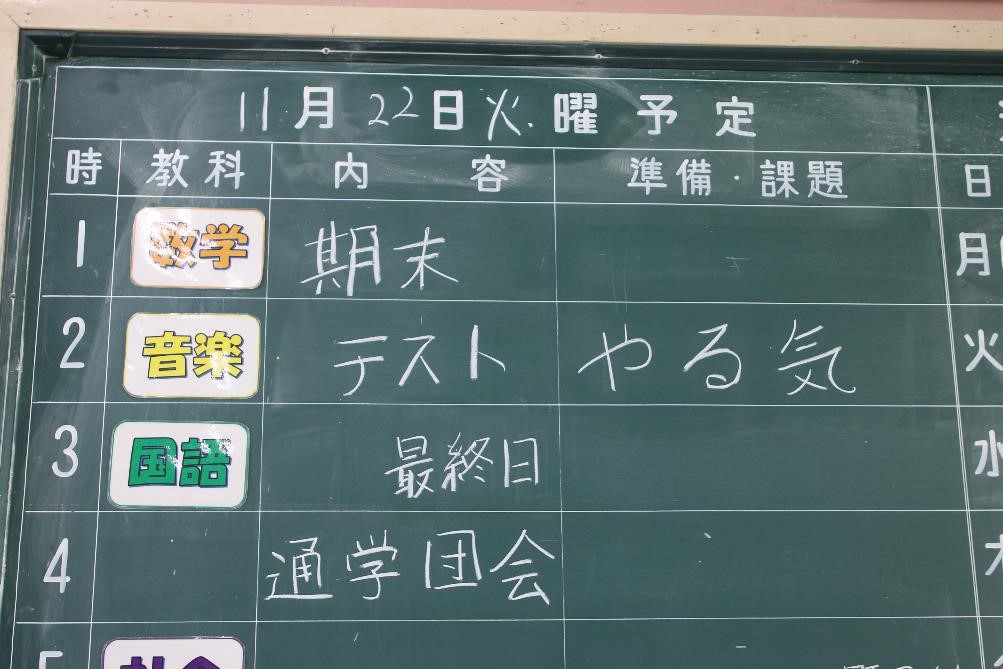 11月22日火曜予定
時 教科 内容 準備・課題 日
1 数学 期末 月
2 音楽 テスト やる気 火
3 国語 最終日 水
4 通学団会